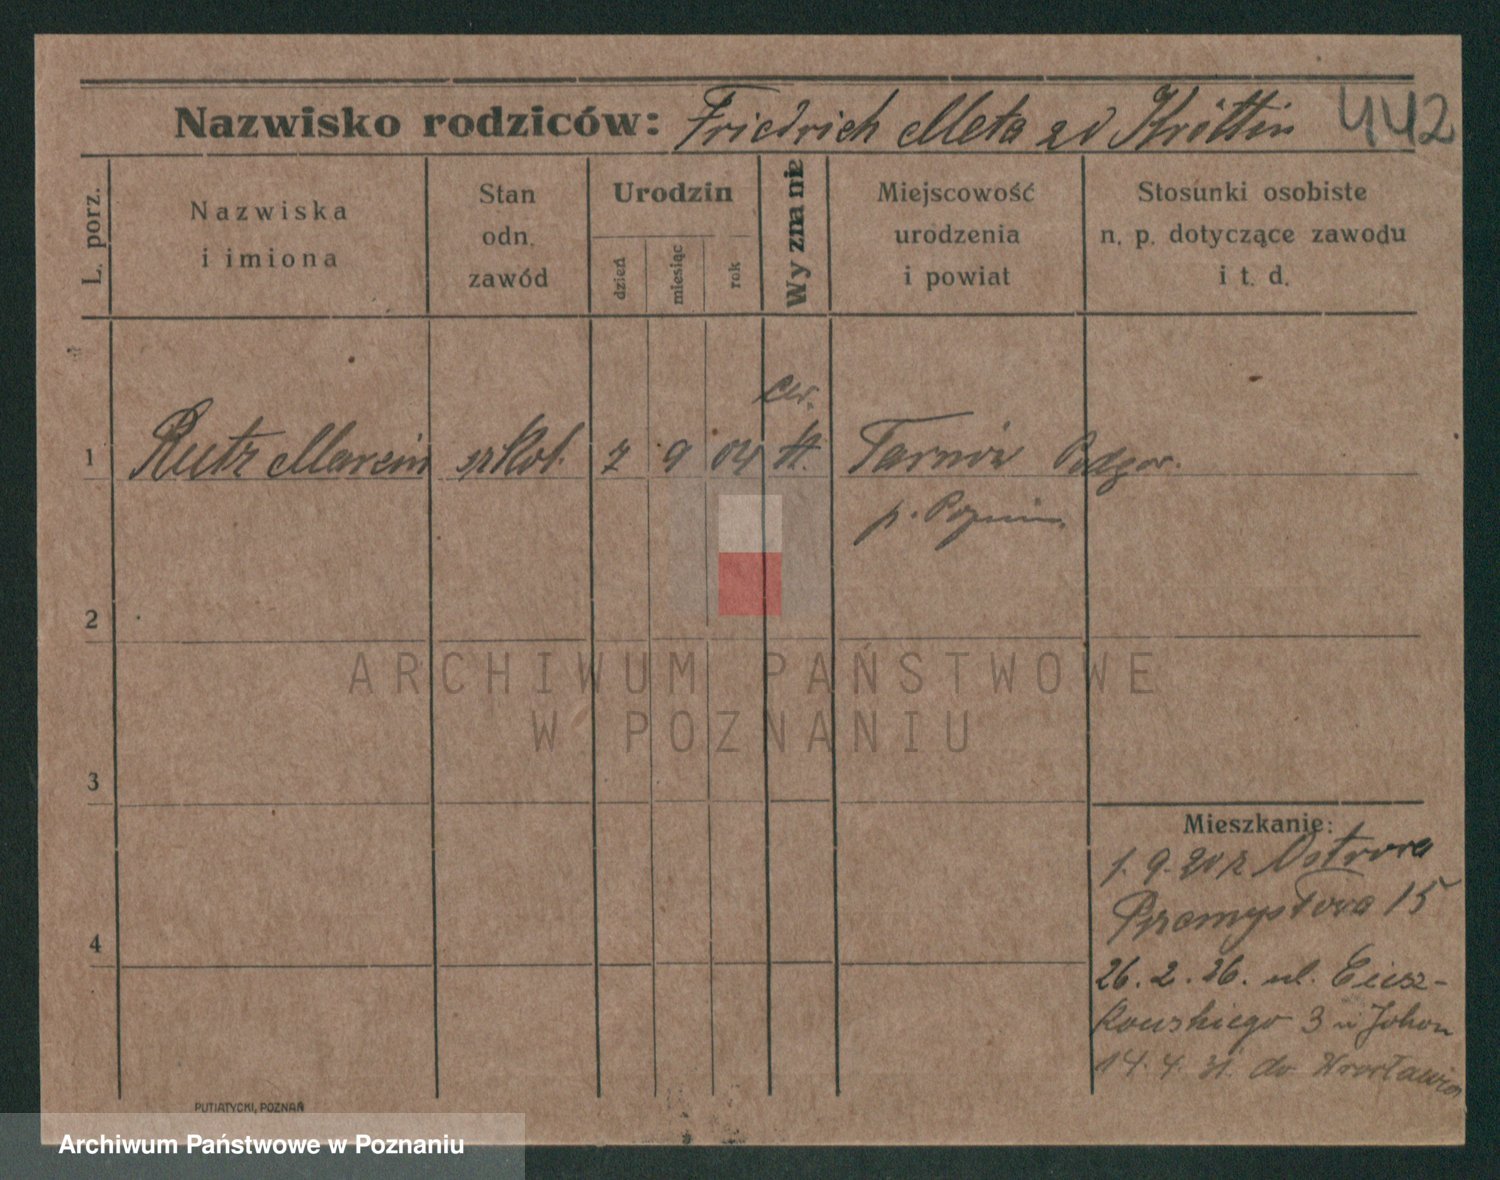 Nazwisko rodziców: Friedrich Meta zd Kröttin 442
L. porz.
Nazwiska
i imiona
Stan
odn.
zawód
Urodzin
dzień
miesiąc
rok
Wyznanie
Miejscowość
urodzenia
i powiat
Stosunki osobiste
n. p. dotyczące zawodu
i t. d.
1 Rutz Marcin szkol. 7 9 04 Tarnów Podgór.
p. Poznań
2
3
4
Mieszkanie:
1. 9. 20 z Ostrowa
Przemysłowa 15
26. 2. 26. ul. Ciesz-
kowskiego 3 u John
14. 4. 31. do Wrocławia
PUTIATYCKI, POZNAŃ
ARCHIWUM PAŃSTWOWE
W POZNANIU
Archiwum Państwowe w Poznaniu